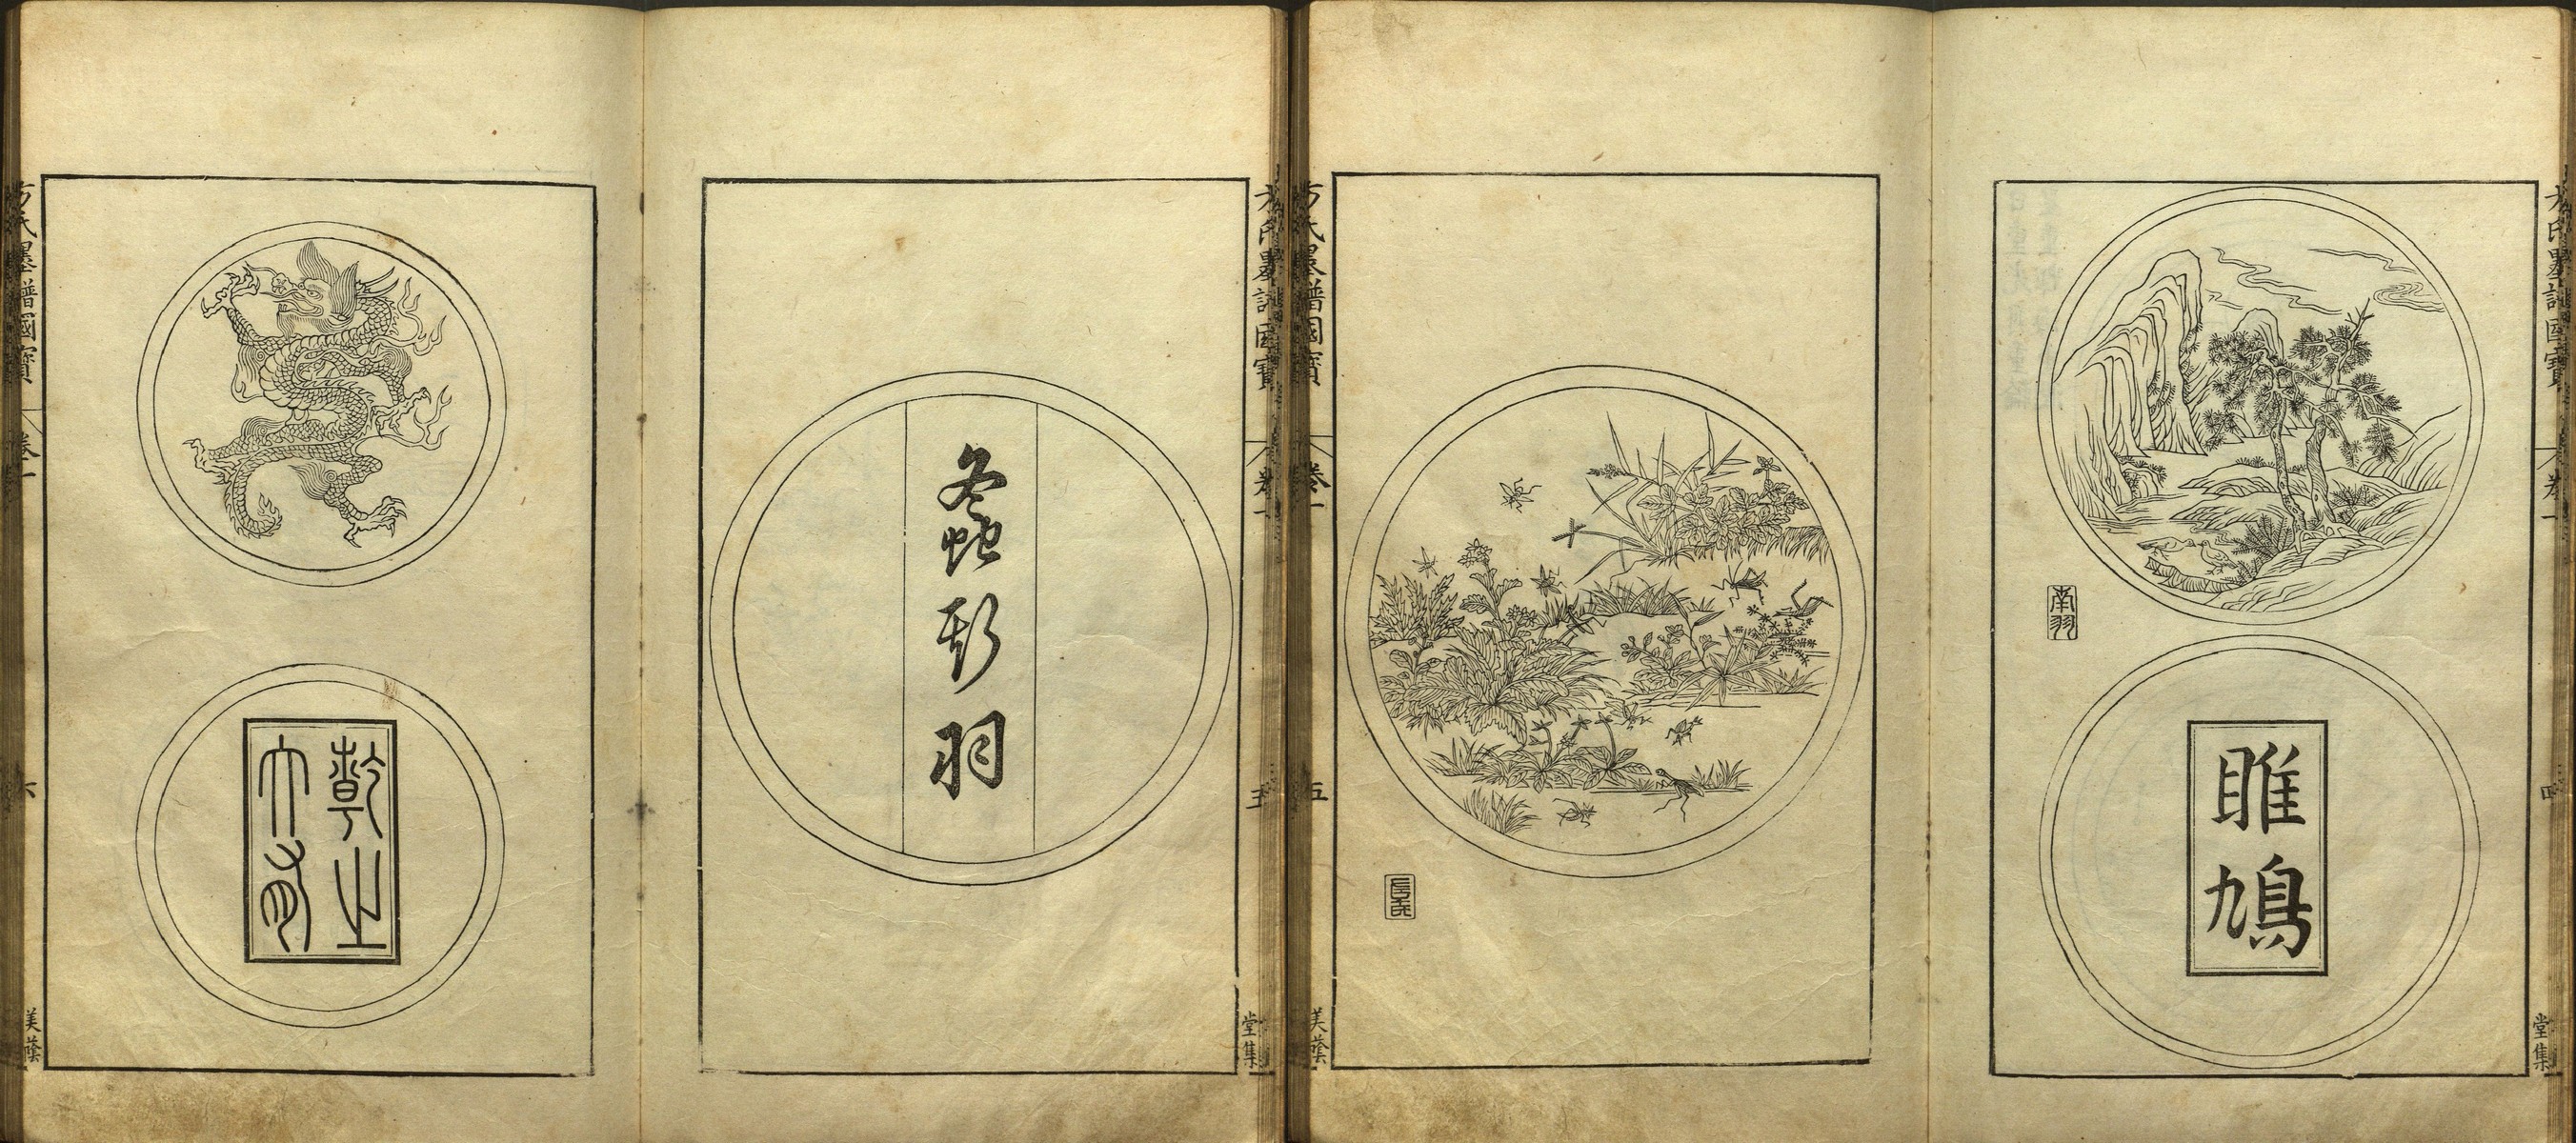 方氏墨譜國寶
卷一
四
堂集
南羽
睢鳩
方氏墨譜國寶
卷一
五
美蔭
方氏墨譜國寶
卷一
五
堂集
螽斯羽
乾之
大有
方氏墨譜國寶
卷一
六
美蔭